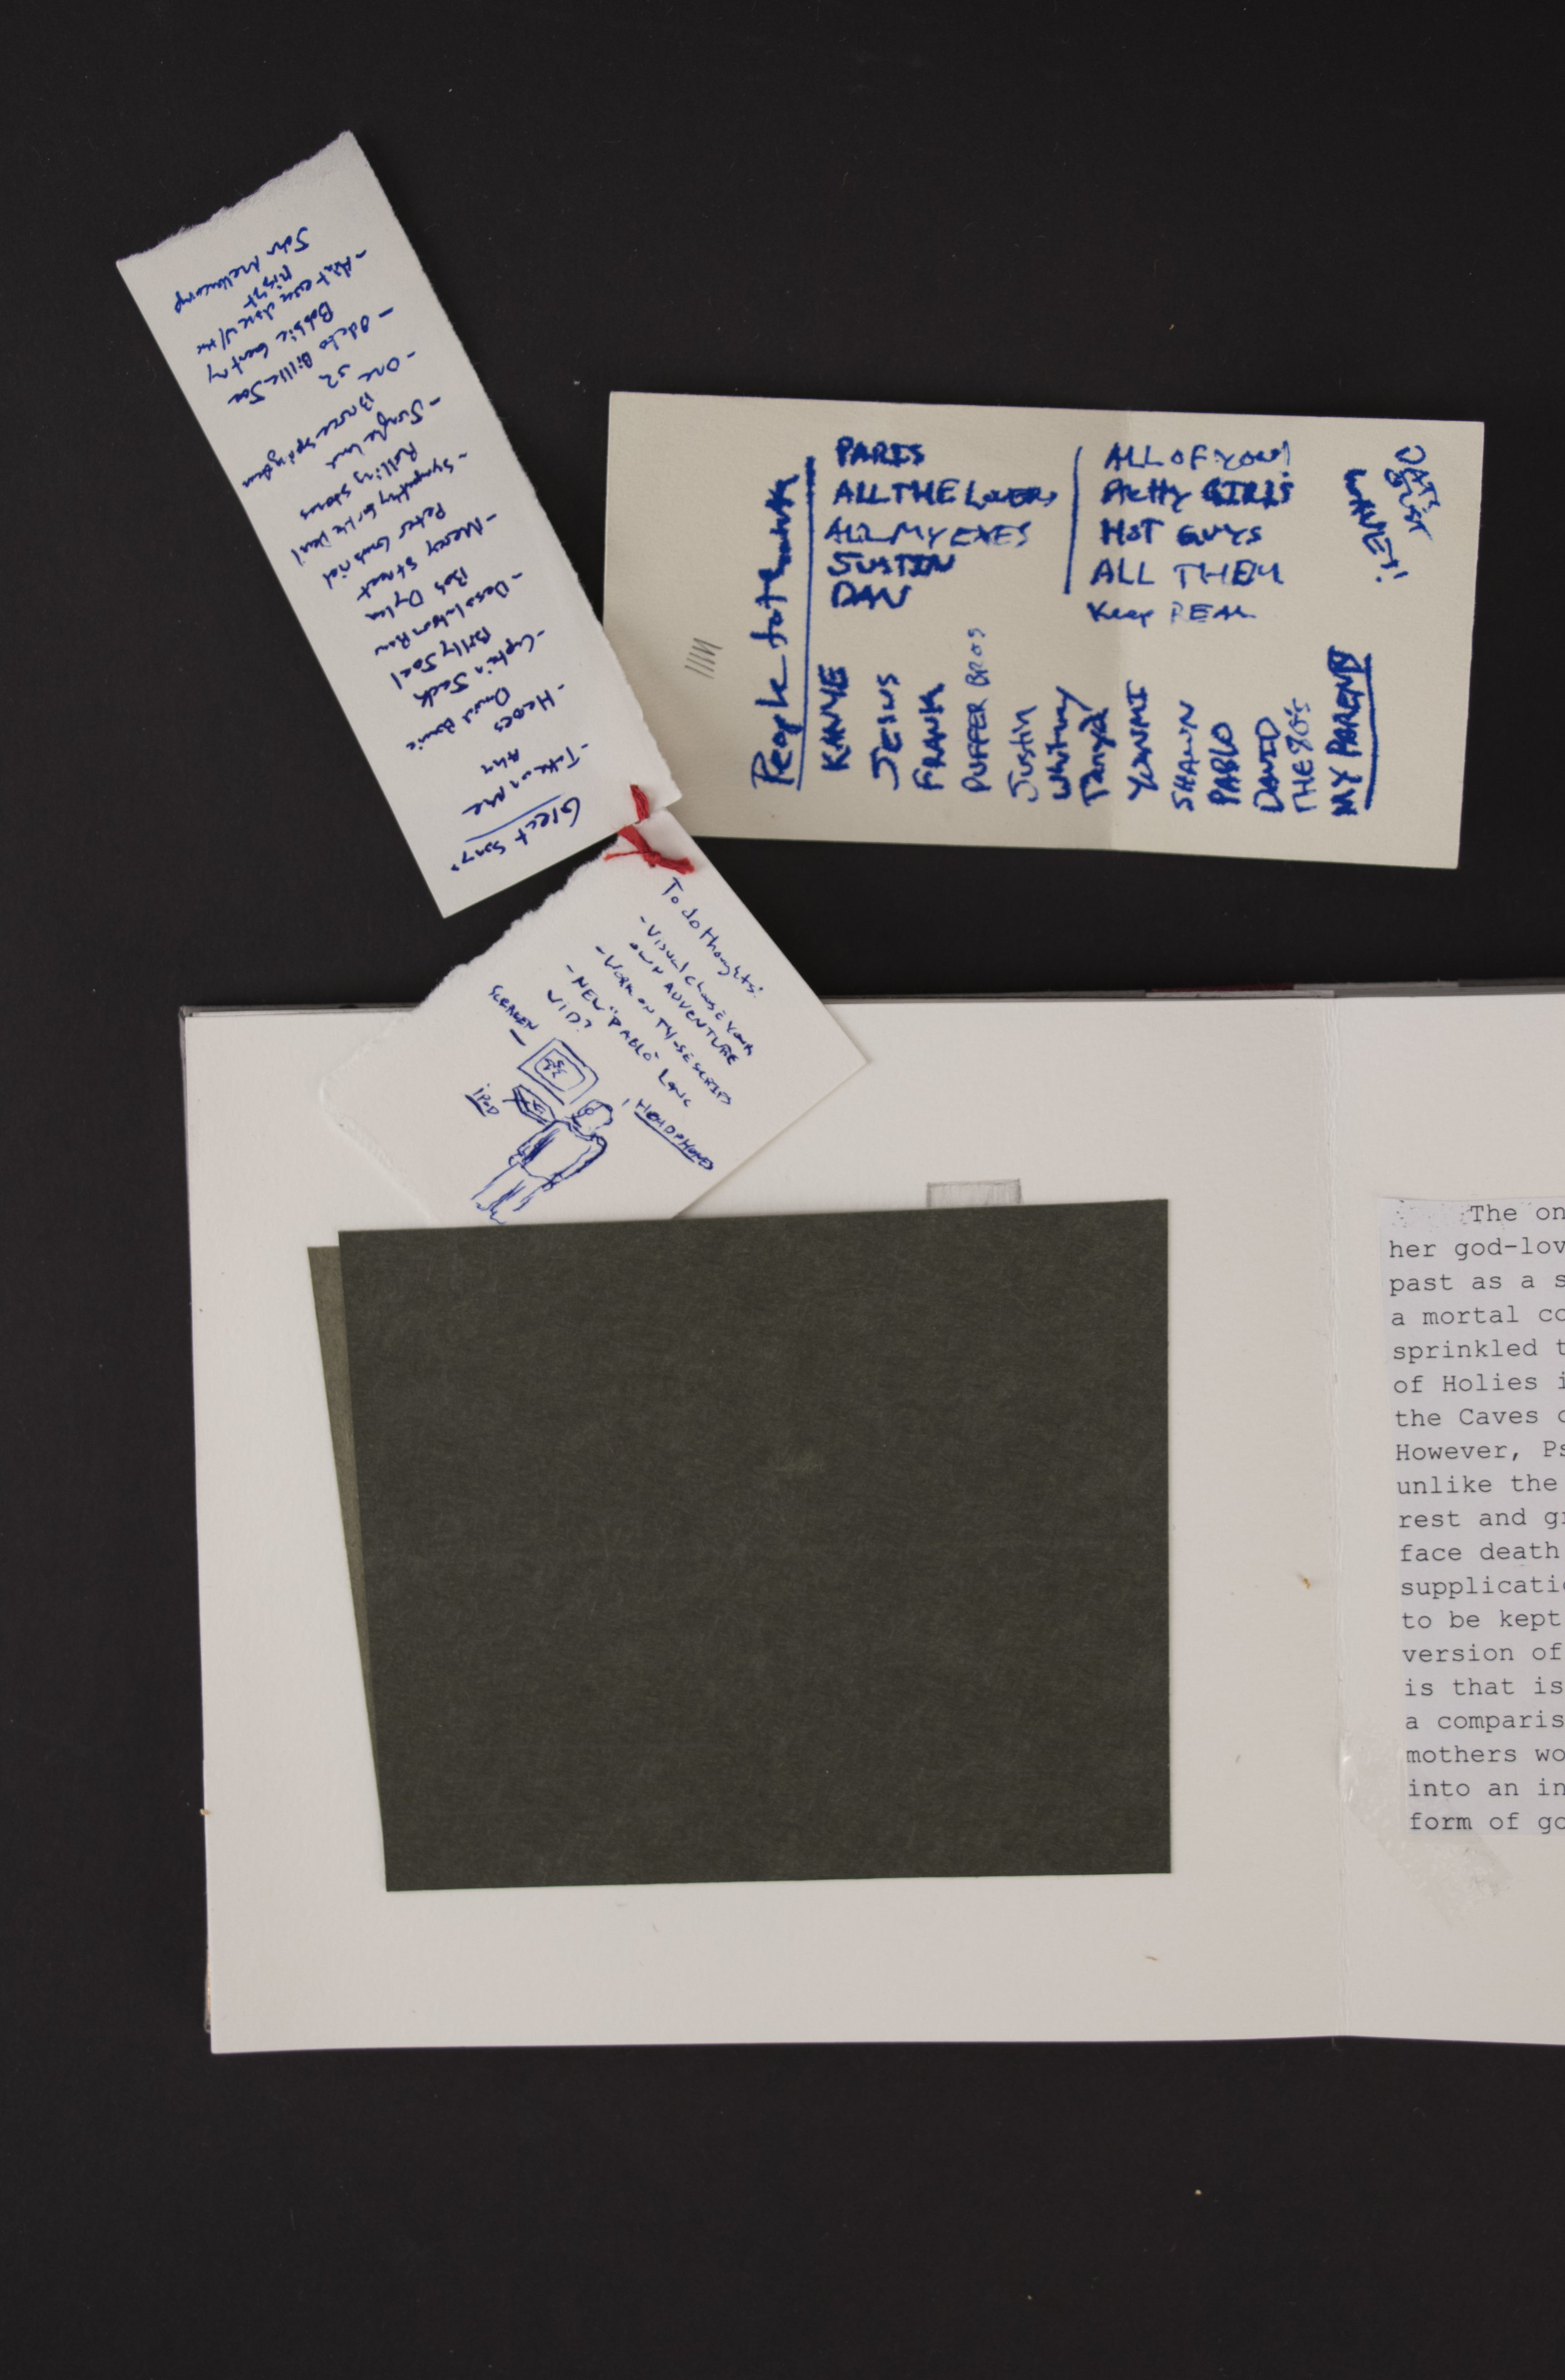 Great Songs
- Take on me
Aha
- Heroes
David Bowie
- Captain Jack
Billy Joel
- Desolation Row
Bob Dylan
- Mercy Street
Peter Gabriel
- Sympathy for the Devil
Rolling Stones
- Jungle land
Bruce Springsteen
- One
U2
- Ode to Billie Joe
Bobbie Gentry
- Ain't even done w/ the
night
John Mellencamp
People to thank
KANYE
JESUS
FRANK
PUFFER BROS
Justin
Whitney
Tanya
YUNMI
SHAWN
PABLO
DAVID
THE 80's
MY PARENTS
PARIS
ALL THE LOVERS
ALL MY EXES
JUSTIN
DAN
ALL OF YOU!
Pretty GIRLS
HOT GUYS
ALL THEM
Keep REAL
To do thoughts:
- VISUAL CHOOSE YOUR
OWN ADVENTURE
- WORK ON
- NEW "PABLO"
VID?
SCREEN
iPOD
HEADPHONES
The on
her god-lov
past as a s
a mortal co
sprinkled t
of Holies i
the Caves o
However, Ps
unlike the
rest and gr
face death
supplicatio
to be kept
version of
is that is
a comparis
mothers wo
into an in
form of go